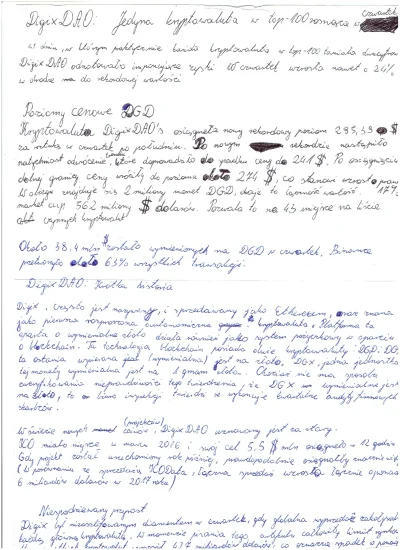 DigixDAO: Jedyna kryptowaluta w top-100 rosnąca w czwartek
w dniu, w którym praktycznie każda kryptowaluta w top-100 taniała
DigixDAO odnotowało imponujące zyski. W czwartek wzrosła nawet o 24%
w drodze na do rekordowej wartości
Poziomy cenowe DGD
Kryptowaluta DigixDAO's osiągnęła nowy rekordowy poziom $
za sztukę w czwartek po południu. Po nowym rekordzie nastąpiło
natychmiast odwrócenie, które doprowadziło do spadku ceny do 241 $. Po osiągnięciu
dolnej granicy ceny wróciły do poziomu około 274 $, co stanowi wzrost o prawie 17%.
W obiegu znajduje się 2 miliony monet DGD, daje to łączną wartość
market cup 562 miliony $ dolarów. Pozwala to na 43 miejsce na liście
kryptowalut
Około 38,4 mln $ zostało wymienionych na DGD w czwartek. Binance
przetworzyło około 63% wszystkich transakcji.
DigixDAO: Krótka historia
Digix, często jest nazywany, i sprzedawany jako Ethereum, oraz znana
jako pierwsza rozproszona autonomiczna kryptowaluta. Platforma ta
oparta o wymienialne złoto działa również jako system pożyczkowy w oparciu
o blockchain. Ta technologia blockchain posiada dwie kryptowaluty: DGD, DGX
ta ostatnia wspierana (wymienialna) jest na złoto. DGX, jedna jednostka
tej monety wymienialna jest na 1 gram złota. Chociaż nie ma sposobu
zweryfikowania nieprawdziwości tego twierdzenia, że DGX wymienialne jest
na złoto, to biuro inspekcji twierdzi że wykonuje kwartalne audyty firmowych
skarbców.
W świecie nowych monet (projektów) coinów, DigixDAO uznawany jest za stary.
ICO miało miejsce w marcu 2016 i swój cel 5,5 $ mln osiągnęło w 12 godzin
Gdy projekt został uruchomiony rok później, prawdopodobnie osiągnąłby znacznie więcej
(W porównaniu ze sprzedażą łączna sprzedaż wzrosła łącznie ponad
6 miliardów dolarów w 2017 roku)
Niespodziewany przyrost
Digix był nieoszlifowanym diamentem w czwartek, gdy globalna wyprzedaż
każdą główną kryptowalutę. W momencie pisania tego artykułu całkowity limit rynku
kryptowalut wynosił 437 miliardów dolarów, co oznacza spadek o ponad